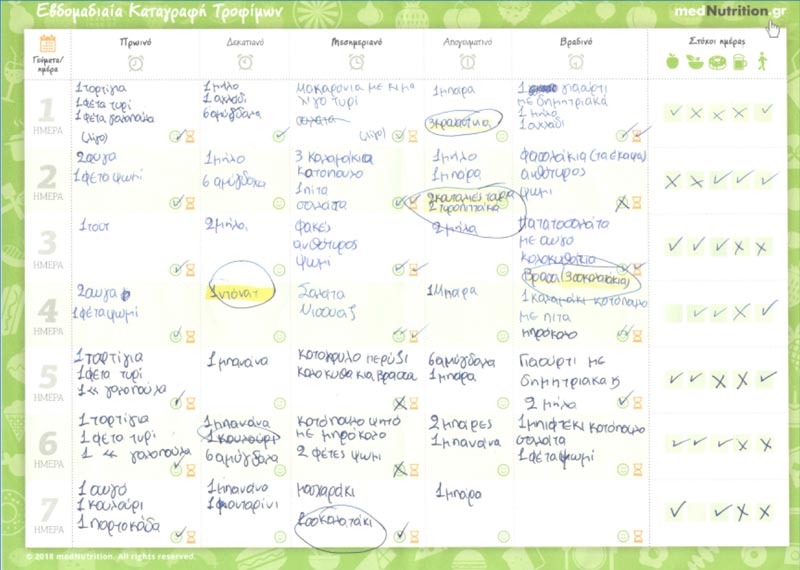 Εβδομαδιαία Καταγραφή Τροφίμων
medNutrition.gr
Γεύματα/
ημέρα
Πρωινό
Δεκατιανό
Μεσημεριανό
Απογευματινό
Βραδινό
Στόχοι ημέρας
1
ΗΜΕΡΑ
1 τορτίγια
1 φέτα τυρί
1 φέτα γαλοπούλα
(λίγο)
1 μήλο
1 αχλάδι
6 αμύγδαλα
μακαρόνια με κιμα
λίγο τυρί
σαλάτα
(λίγο)
1 μπαρα
1 γιαούρτι
με δημητριακά
1 μήλο
1 αχλάδι
2
ΗΜΕΡΑ
2 αυγα
1 φέτα ψωμί
1 μήλο
6 αμύγδαλα
3 καλαμάκια
κοτοπουλο
1 πίτα
σαλάτα
1 μήλο
1 μπάρα
2 τυροπιτάκια
φασολάκια (τα έκαψα)
ανθότυρος
ψωμι
3
ΗΜΕΡΑ
1 τοστ
2 μήλα
φακές
ανθότυρος
ψωμί
2 μήλα
πατατοσαλάτα
με αυγο
κολοκυθάκια
βραστα (3 σοκολατάκια)
4
ΗΜΕΡΑ
2 αυγα
1 φέτα ψωμί
1 ντόνατ
Σαλάτα
Νισουαζ
1 Μπαρα
1 καλαμάκι κοτόπουλο
με πίτα
μπρόκολο
5
ΗΜΕΡΑ
1 τορτίγια
1 φέτα τυρί
1 « γαλοπούλα
1 μπανάνα
κοτόπουλο με ρύζι
κολοκυθακια βραστα
6 αμύγδαλα
1 μπαρα
Γιαούρτι με
δημητριακα
2 μήλα
6
ΗΜΕΡΑ
1 τορτίγια
1 φέτα τυρί
1 « γαλοπούλα
1 μπανάνα
1 κουλούρι
6 αμύγδαλα
κοτόπουλο ψητό
με μπρόκολο
2 φέτες ψωμι
2 μπαρες
1 μπανάνα
1 μπιφτέκι κοτόπουλο
σαλάτα
1 φέτα ψωμί
7
ΗΜΕΡΑ
1 αυγό
1 κουλούρι
1 πορτοκάδα
1 μπανάνα
1 μανταρίνι
μοσχαράκι
1 σοκολατάκι
1 μπάρα
© 2018 medNutrition. All rights reserved.